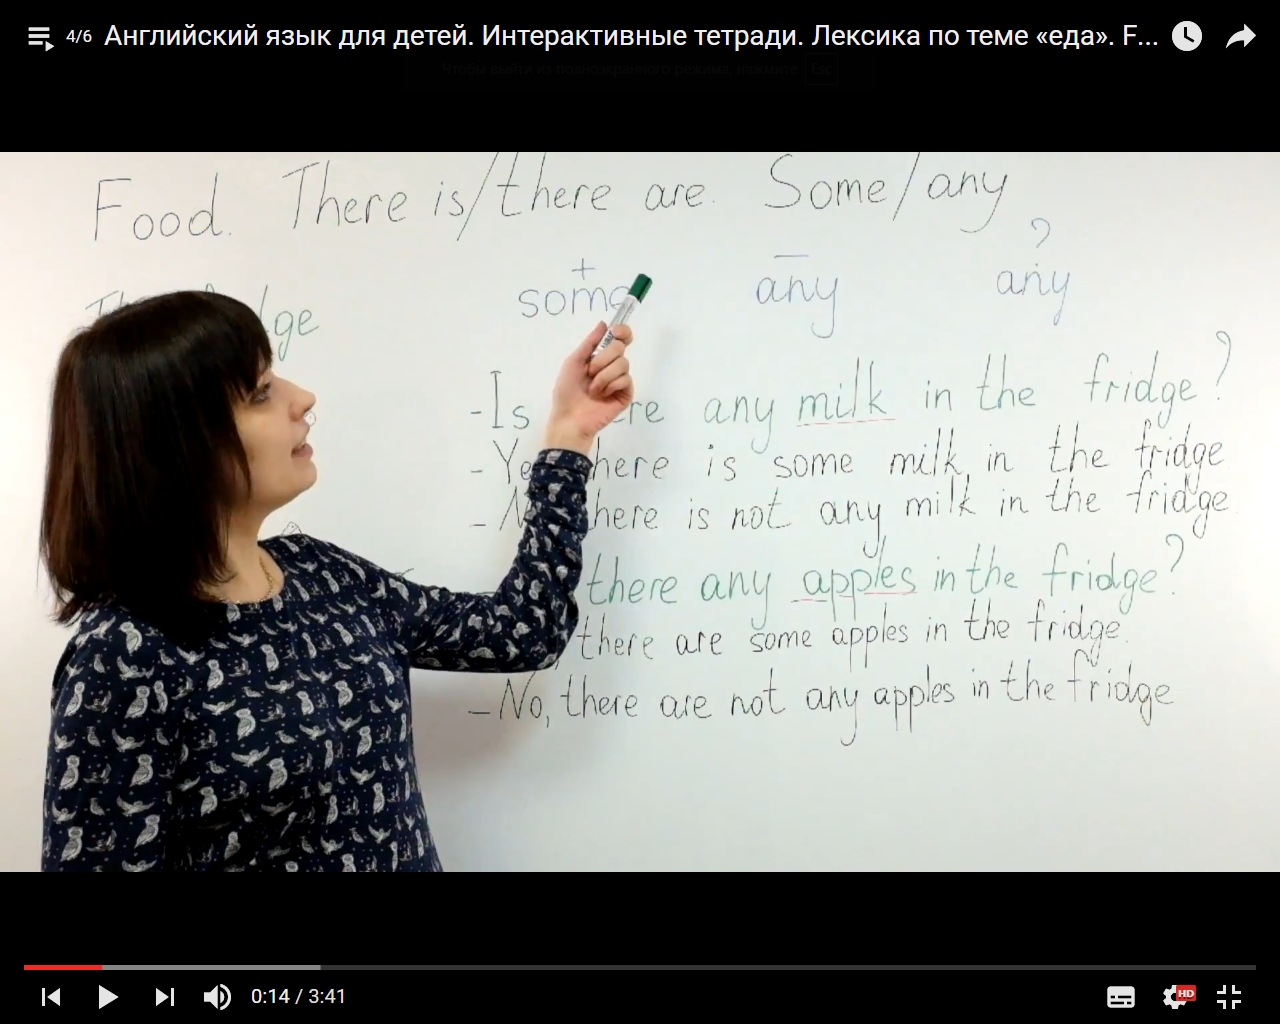 4/6 Английский язык для детей. Интерактивные тетради. Лексика по теме «еда». F...
Чтобы выйти из полноэкранного режима, нажмите Esc
Food. There is/there are. Some/any
+ – ?
some any any
-Is any milk in the fridge?
- there is some milk in the fridge
- there is not any milk in the fridge.
there any apples in the fridge?
there are some apples in the fridge.
- No, there are not any apples in the fridge
0:14 / 3:41
HD